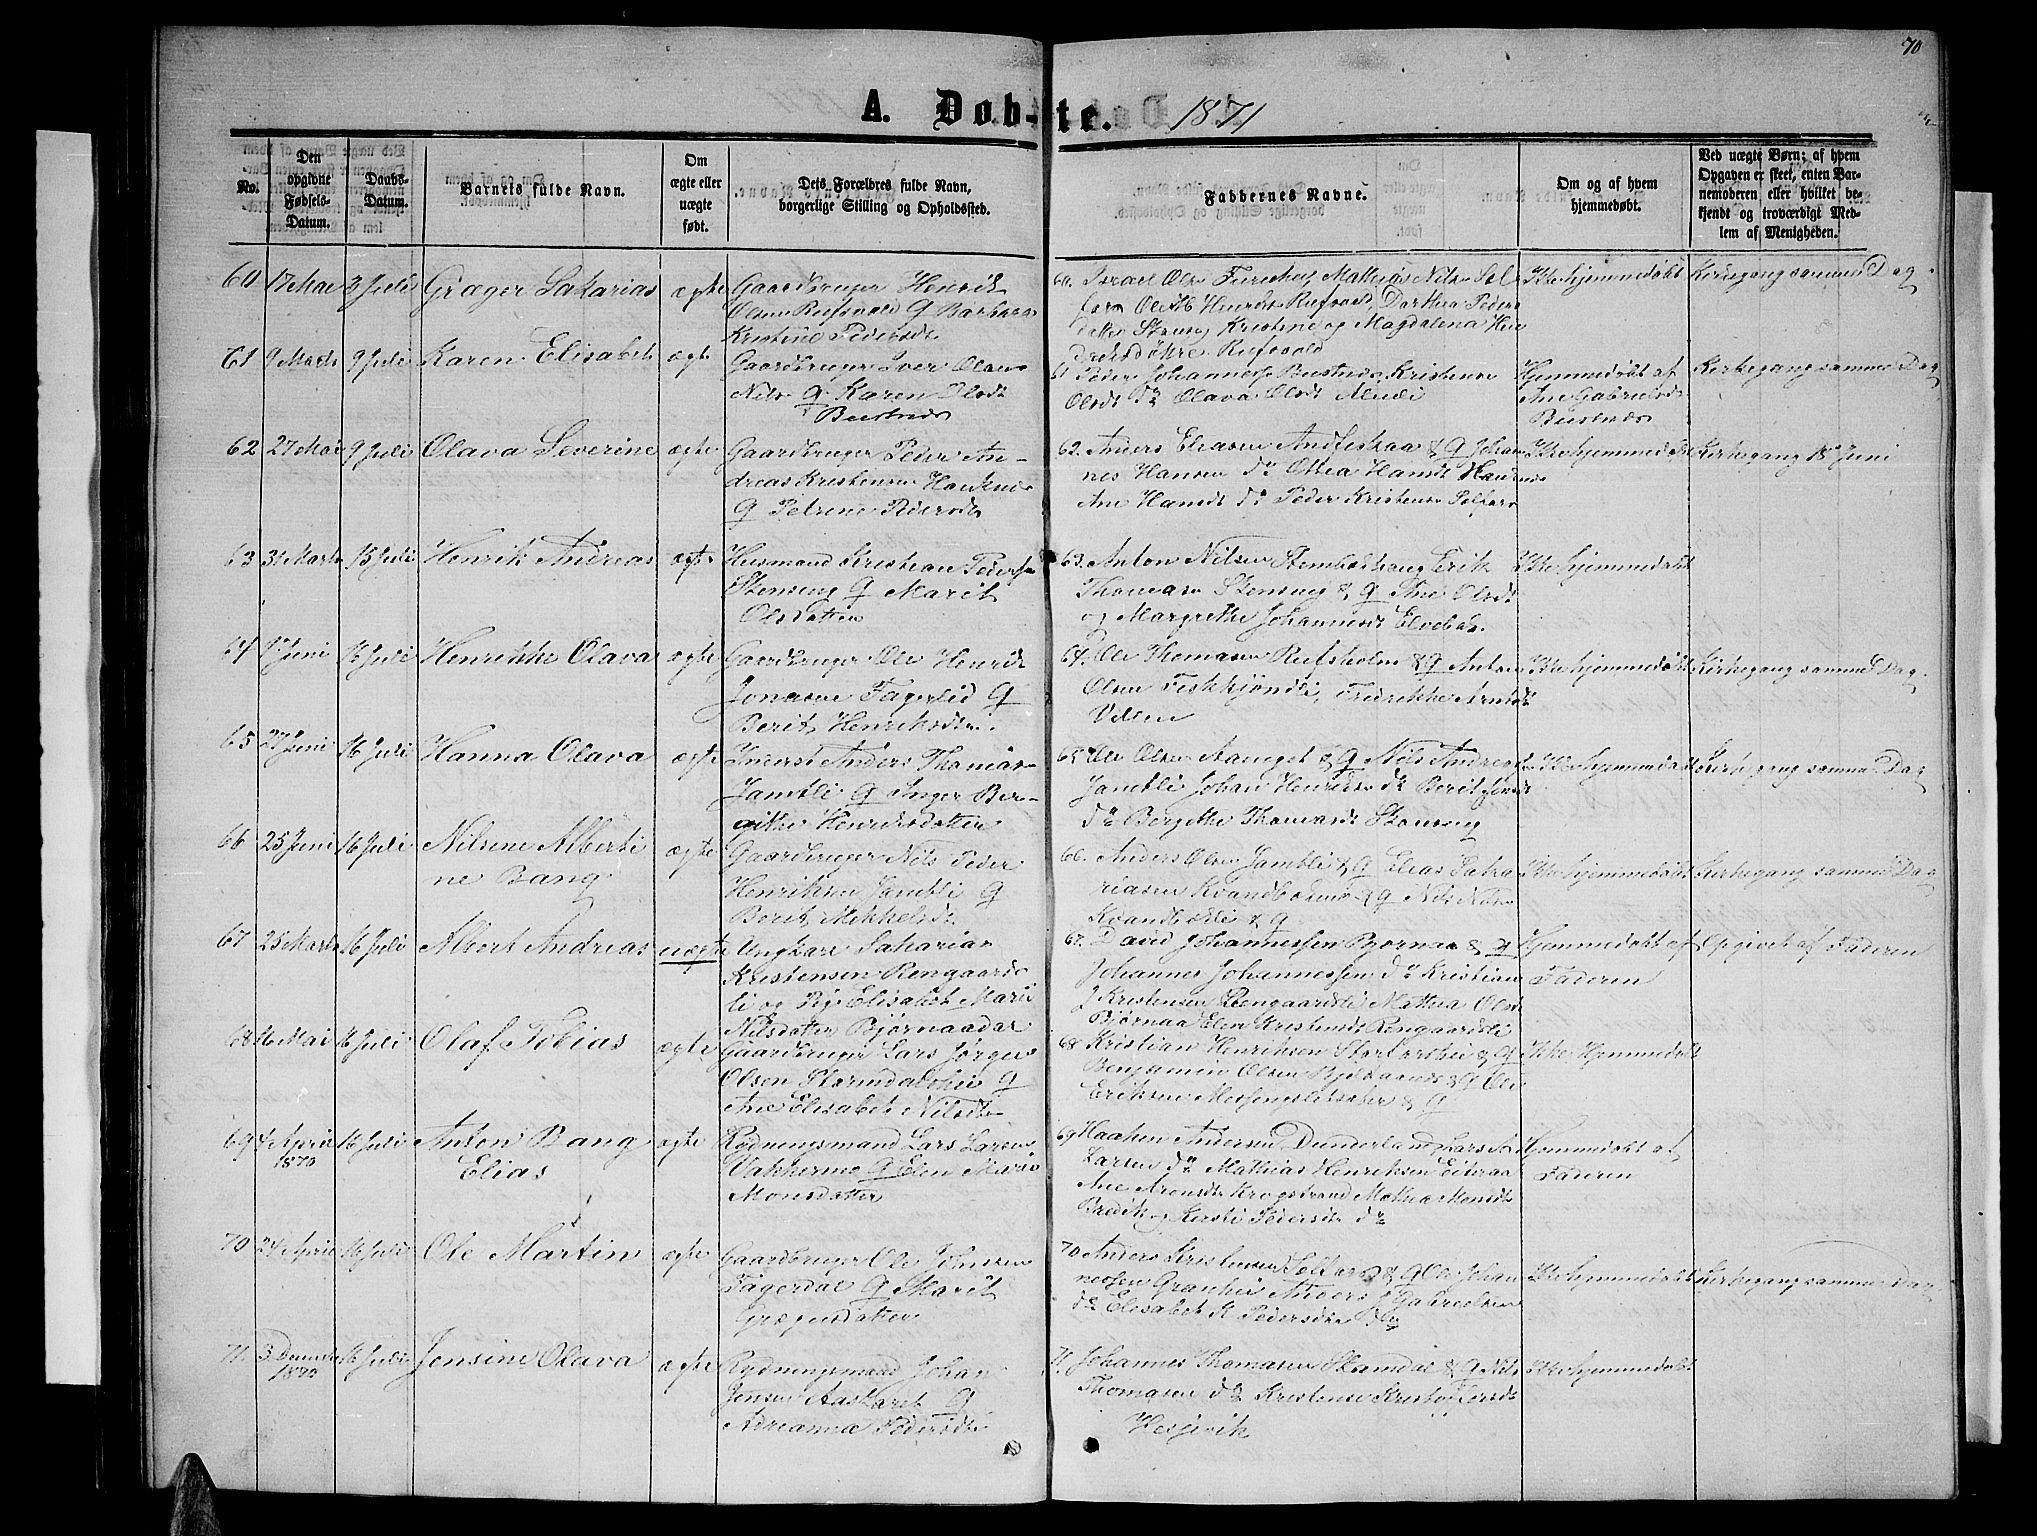 70
A. Døb-te. 1871
No.
Den opgivne Fødsels-Datum.
Daabs-Datum.
Barnets fulde Navn.
Om ægte eller uægte født.
Dets Forældres fulde Navn, borgerlige Stilling og Opholdssted.
Faddernes Navne.
Om og af hvem hjemmedøbt.
Ved uægte Børn; af hvem Opgaven er skeet, enten Barnemoderen eller hvilket bekjendt og troværdigt Medlem af Menigheden.
60 17 Mai 2 Juli Græger Sakarias ægte Gaardbruger Henrik
Olsen Rufsvold G Barbara
Kristine Pedersdt
60. Israel Ols Mathias Nils
Ole Henrks Rufsvold, Darthea Peders
datter Kristine og Magdalena Hen
driksdøtre Rufsvold
Ikke hjemmedøbt Kirkegang samme Dag
61 9 Marts 9 Juli Karen Elisabet ægte Gaardbruger Iver Olsen
Nils G Karen Olsdt
Bustnes
61 Peder Johannesse Bustnes, Kristense
Olsdt do Olava Olsdt
Hjemmedøbt af
Ane Gabrielsdt
Bustnes
Kirkegang samme Dag
62 27 Mai 9 Juli Olava Severine ægte Gaardbruger Peder An-
dreas Kristensen Hauknes
G Petrine Pedersdt
62. Anders Eliasen Andfiskaa & G Johan
nes Hansen do Othea Hansdt Hauknes
Ane Hansdt do Peder Kristensen Selfors
Ikke hjemmedøbt Kirkegang 18 Juni
63 31 Marts 15 Juli Henrik Andreas ægte Husmand Kristian Peders
Stensing G Marit
Olsdatter
63. Anton Nilsen Erik
Thomasen Stensing & G Ane Olsdt
og Margrethe Johannesdt Elvebak
Ikke hjemmedøbt
64 1 Juni 16 Juli Henrikke Olava ægte Gaardbruger Ole Henrik
Jonasen Fagerlid G
Berit Henriksdt
64. Ole Thomasen Rufsholm & G Anton
Olsen Fiskkjøndli, Fredrikke Arntsdt
Ikke hjemmedøbt Kirkegang samme Dag.
65 27 Juni 16 Juli Hanna Olava ægte Inderst Anders Thomas
Jamtli G Inger Ber-
githe Henriksdatter
65. Ole Olsen & G Nils Andreas
Jamtli Johan Henriks do Berit Jonsdt
do Bergitte Thomasdt
Ikke hjemmedøbt Kirkegang samme Dag
66 25 Juni 16 Juli Nilsine Alberti
ne Bang
ægte Gaardbruger Nils Peder
Henriksen Jamtli G
Berit Mikkelsdt
66. Anders Olsen Jamtli & G Elias Saka
riasen & G Nils Nils
& G
Ikke hjemmedøbt Kirkegang samme Dag
67 25 Marts 16 Juli Albert Andreas uægte Ungkarl Sakarias
Kristensen Rengaards
li og Pig Elisabet Marie
Nilsdatter Bjørnaadal
67. David Johannessen Bjørnaa & G
Johannes Johannessen do Kristian
J Kristensen Rengaardsli Mathea Olsdt
Bjørnaa Elen Kristensdt Rengaardsli
Hjemmedøbt af
Faderen
Opgivet af Faderen
68 16 Mai 16 Juli Olaf Tobias ægte Gaardbruger Lars Jørgen
Olsen Stormdalshei G
Ane Elisabet Nilsdt
68 Kristian Henriksen & G
Benjamin Olsen & G Ole
Eriksen Messingsletsæter & G
Ikke Hjemmedøbt
69 4 April
1870
16 Juli Anton Bang
Elias
ægte Rydningsmand Lars Larsen
G Elen Marie
Monsdatter
69 Haaken Andersen Dunderland, Lars A
Larsen do Mathias Henriksen Eiteraa
Ane Aronsdt Krogstrand Mathea Monsdt
Bredek, Kirsti Pedersdt do
Hjemmedøbt af
Faderen
70 24 April 16 Juli Ole Martin ægte Gaardbruger Ole Johnsen
Fagerdal G Marit
Grægersdatter
70 Anders Kristensen Selfors & G Ole Johan
nessen Granhei Anders J Gabrielsen
do Elisabet K Pedersdt
Ikke hjemmedøbt Kirkegang samme Dag
71. 3 Decembr
1870
16 Juli Jensine Olava ægte Rydningsmand Johan
Jensen G
Adrianna Pedersdt
71. Johannes Thomasen Stamdal & G Nils
Thomasen do Kristense Kristoffersdt
Hesjevik
Ikke hjemmedøbt